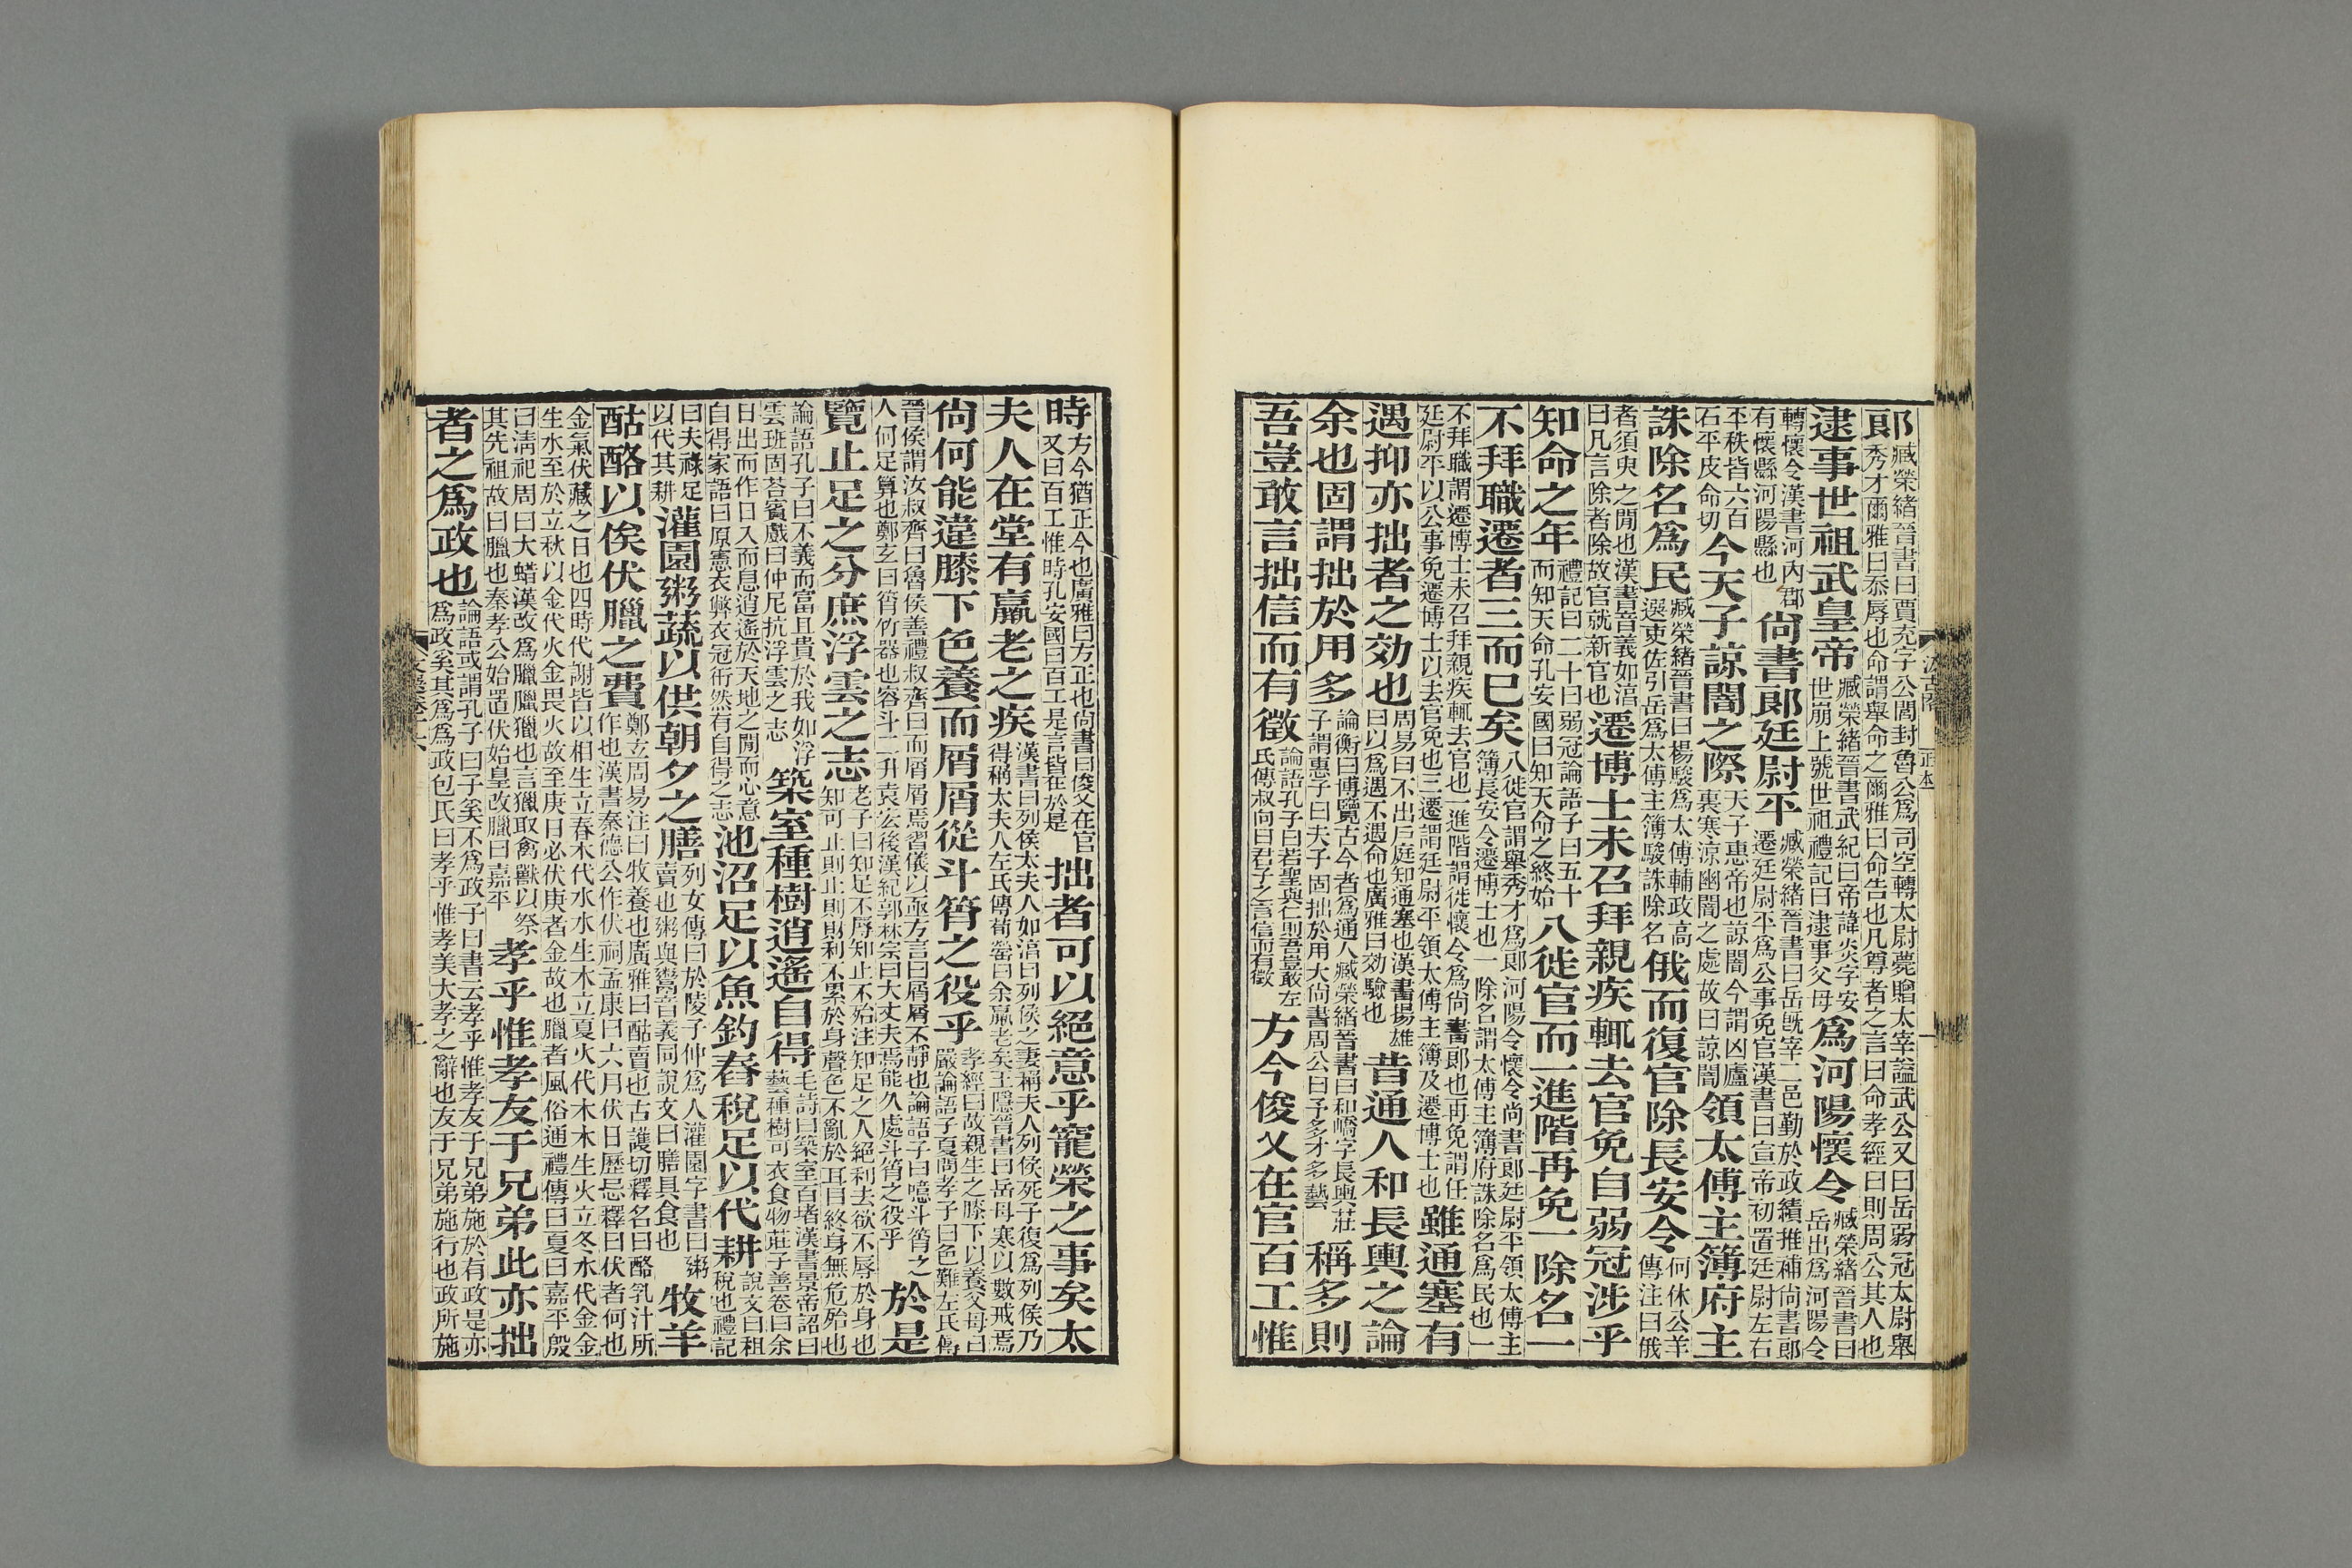 郞臧榮緒晉書曰賈充字公閭封魯公爲司空轉太尉薨贈太宰謚武公又曰岳弱冠太尉舉
秀才爾雅曰忝辱也命謂舉命之爾雅曰命告也凡尊者之言曰命孝經曰則周公其人也
逮事世祖武皇帝臧榮緒晉書武紀曰帝諱炎字安世崩上號世祖禮記曰逮事父母爲河陽懷令臧榮緒晉書曰岳出爲河陽令
轉懷令漢書河內郡有懷縣河陽縣也尙書郎廷尉平臧榮緒晉書曰岳旣宰二邑勤於政績推補尙書郎遷廷尉平爲公事免官漢書曰宣帝初置廷尉左右
平秩皆六百石平皮命切今天子諒闇之際天子惠帝也諒闇今謂凶廬裏寒涼幽闇之處故曰諒闇領太傅主簿府主
誅除名爲民臧榮緒晉書曰楊駿爲太傅輔政高選吏佐引岳爲太傅主簿駿誅除名俄而復官除長安令何休公羊傳注曰俄
者須臾之閒也漢書音義如淳曰凡言除者除故官就新官也遷博士未召拜親疾輒去官免自弱冠涉乎
知命之年禮記曰二十曰弱冠論語子曰五十而知天命孔安國曰知天命之終始八徙官而一進階再免一除名一
不拜職遷者三而巳矣八徙官謂舉秀才爲郎河陽令懷令尙書郎廷尉平領太傅主簿長安令遷博士也一除名謂太傅主簿府誅除名爲民也一
不拜職謂遷博士未召拜親疾輒去官也一進階謂徙懷令爲尙書郎也再免謂任廷尉平以公事免遷博士以去官免也三遷謂廷尉平領太傅主簿及遷博士也雖通塞有
遇抑亦拙者之効也周易曰不出戶庭知通塞也漢書揚雄曰以爲遇不遇命也廣雅曰効驗也昔通人和長輿之論
余也固謂拙於用多論衡曰博覽古今者爲通人臧榮緒晉書曰和嶠字長輿莊子謂惠子曰夫子固拙於用大尙書周公曰予多才多藝稱多則
吾豈敢言拙信而有徵論語孔子曰若聖與仁則吾豈敢左氏傳叔向曰君子之言信而有徵方今俊乂在官百工惟
時方今猶正今也廣雅曰方正也尙書曰俊乂在官又曰百工惟時孔安國曰百工是言皆在於是拙者可以絕意乎寵榮之事矣太
夫人在堂有羸老之疾漢書曰列侯太夫人如淳曰列侯之妻稱夫人列侯死子復爲列侯乃得稱太夫人左氏傳荀罃曰余羸老矣王隱晉書曰岳母寒以數戒焉
尙何能違膝下色養而屑屑從斗筲之役乎孝經曰故親生之膝下以養父母曰嚴論語子夏問孝子曰色難左氏傳
晉侯謂汝叔齊曰魯侯善禮叔齊曰而屑屑焉習儀以亟方言曰屑屑不靜也論語子曰噫斗筲之人何足算也鄭玄曰筲竹器也容斗二升袁宏後漢紀郭林宗曰大丈夫焉能久處斗筲之役乎於是
覽止足之分庶浮雲之志老子曰知足不辱知止不殆注知足之人絕利去欲不辱於身也知可止則止則財利不累於身聲色不亂於耳目終身無危殆也
論語孔子曰不義而富且貴於我如浮雲班固荅賓戲曰仲尼抗浮雲之志築室種樹逍遙自得毛詩曰築室百堵漢書景帝詔曰藝種樹可衣食物莊子善卷曰余
日出而作日入而息逍遙於天地之閒而心意自得家語曰原憲衣弊衣冠衎然有自得之志池沼足以魚釣舂稅足以代耕說文曰租稅也禮記
曰夫祿足以代其耕灌園粥蔬以供朝夕之膳列女傳曰於陵子仲爲人灌園字書曰粥賣也粥與鬻音義同說文曰膳具食也牧羊
酤酪以俟伏臘之費鄭玄周易注曰牧養也廣雅曰酤賣也古護切釋名曰酪乳汁所作也漢書秦德公作伏祠孟康曰六月伏日歷忌釋曰伏者何也
金氣伏藏之日也四時代謝皆以相生立春木代水水生木立夏火代木木生火立冬水代金金
生水至於立秋以金代火金畏火故至庚日必伏庚者金故也臘者風俗通禮傳曰夏曰嘉平殷
曰淸祀周曰大蜡漢改爲臘臘獵也言獵取禽獸以祭其先祖故曰臘也秦孝公始置伏始皇改臘曰嘉平孝乎惟孝友于兄弟此亦拙
者之爲政也論語或謂孔子曰子奚不爲政子曰書云孝乎惟孝友于兄弟施於有政是亦爲政奚其爲爲政包氏曰孝乎惟孝美大孝之辭也友于兄弟施行也政所施